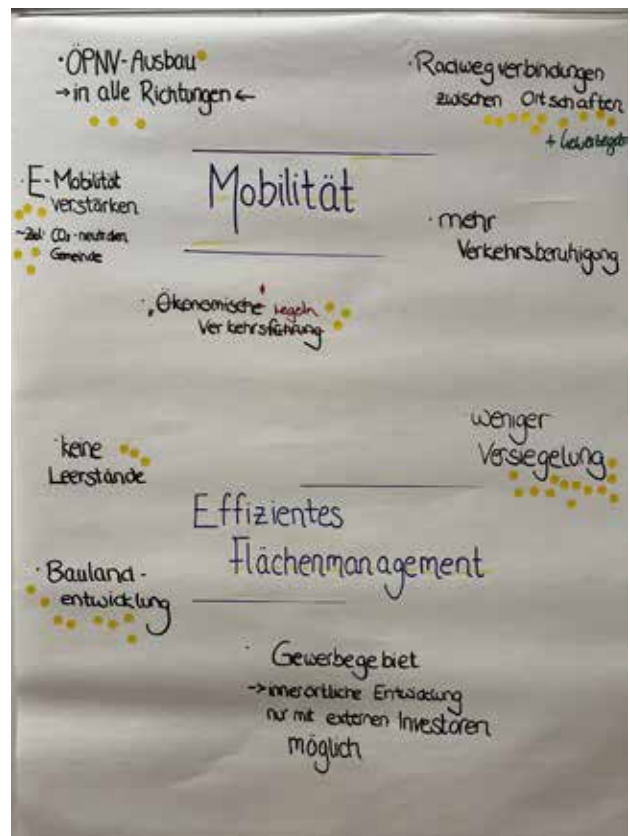 · ÖPNV-Ausbau
→ in alle Richtungen ←
· Radwegverbindungen
zwischen Ortschaften
+ Gewerbegeb
· E-Mobilität
verstärken
Mobilität
~Ziel: CO₂-neutralen
Gemeinde
· mehr
Verkehrsberuhigung
· „Ökonomische" regeln
Verkehrsführung
weniger
Versiegelung
· keine
Leerstände
Effizientes
Flächenmanagement
· Bauland-
entwicklung
· Gewerbegebiet
→ innerörtliche Entwicklung
nur mit externen Investoren
möglich